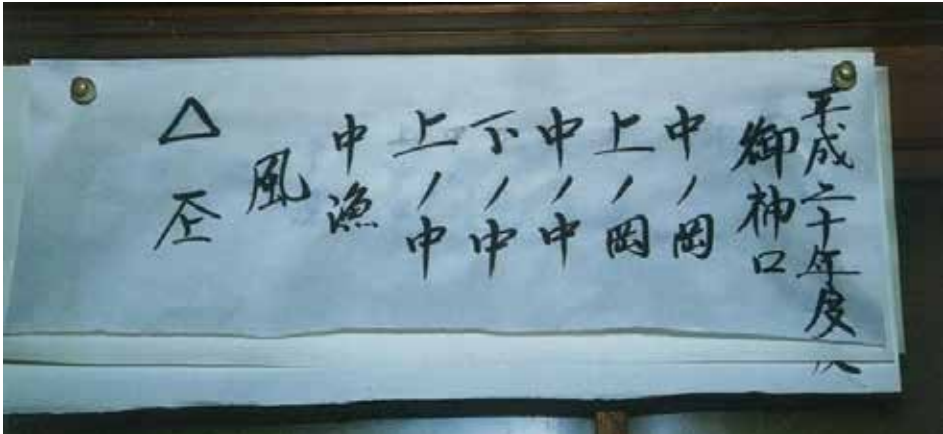 平成二十年度
御神口
中ノ岡
上ノ岡
中ノ中
下ノ中
上ノ中
中漁
風
△